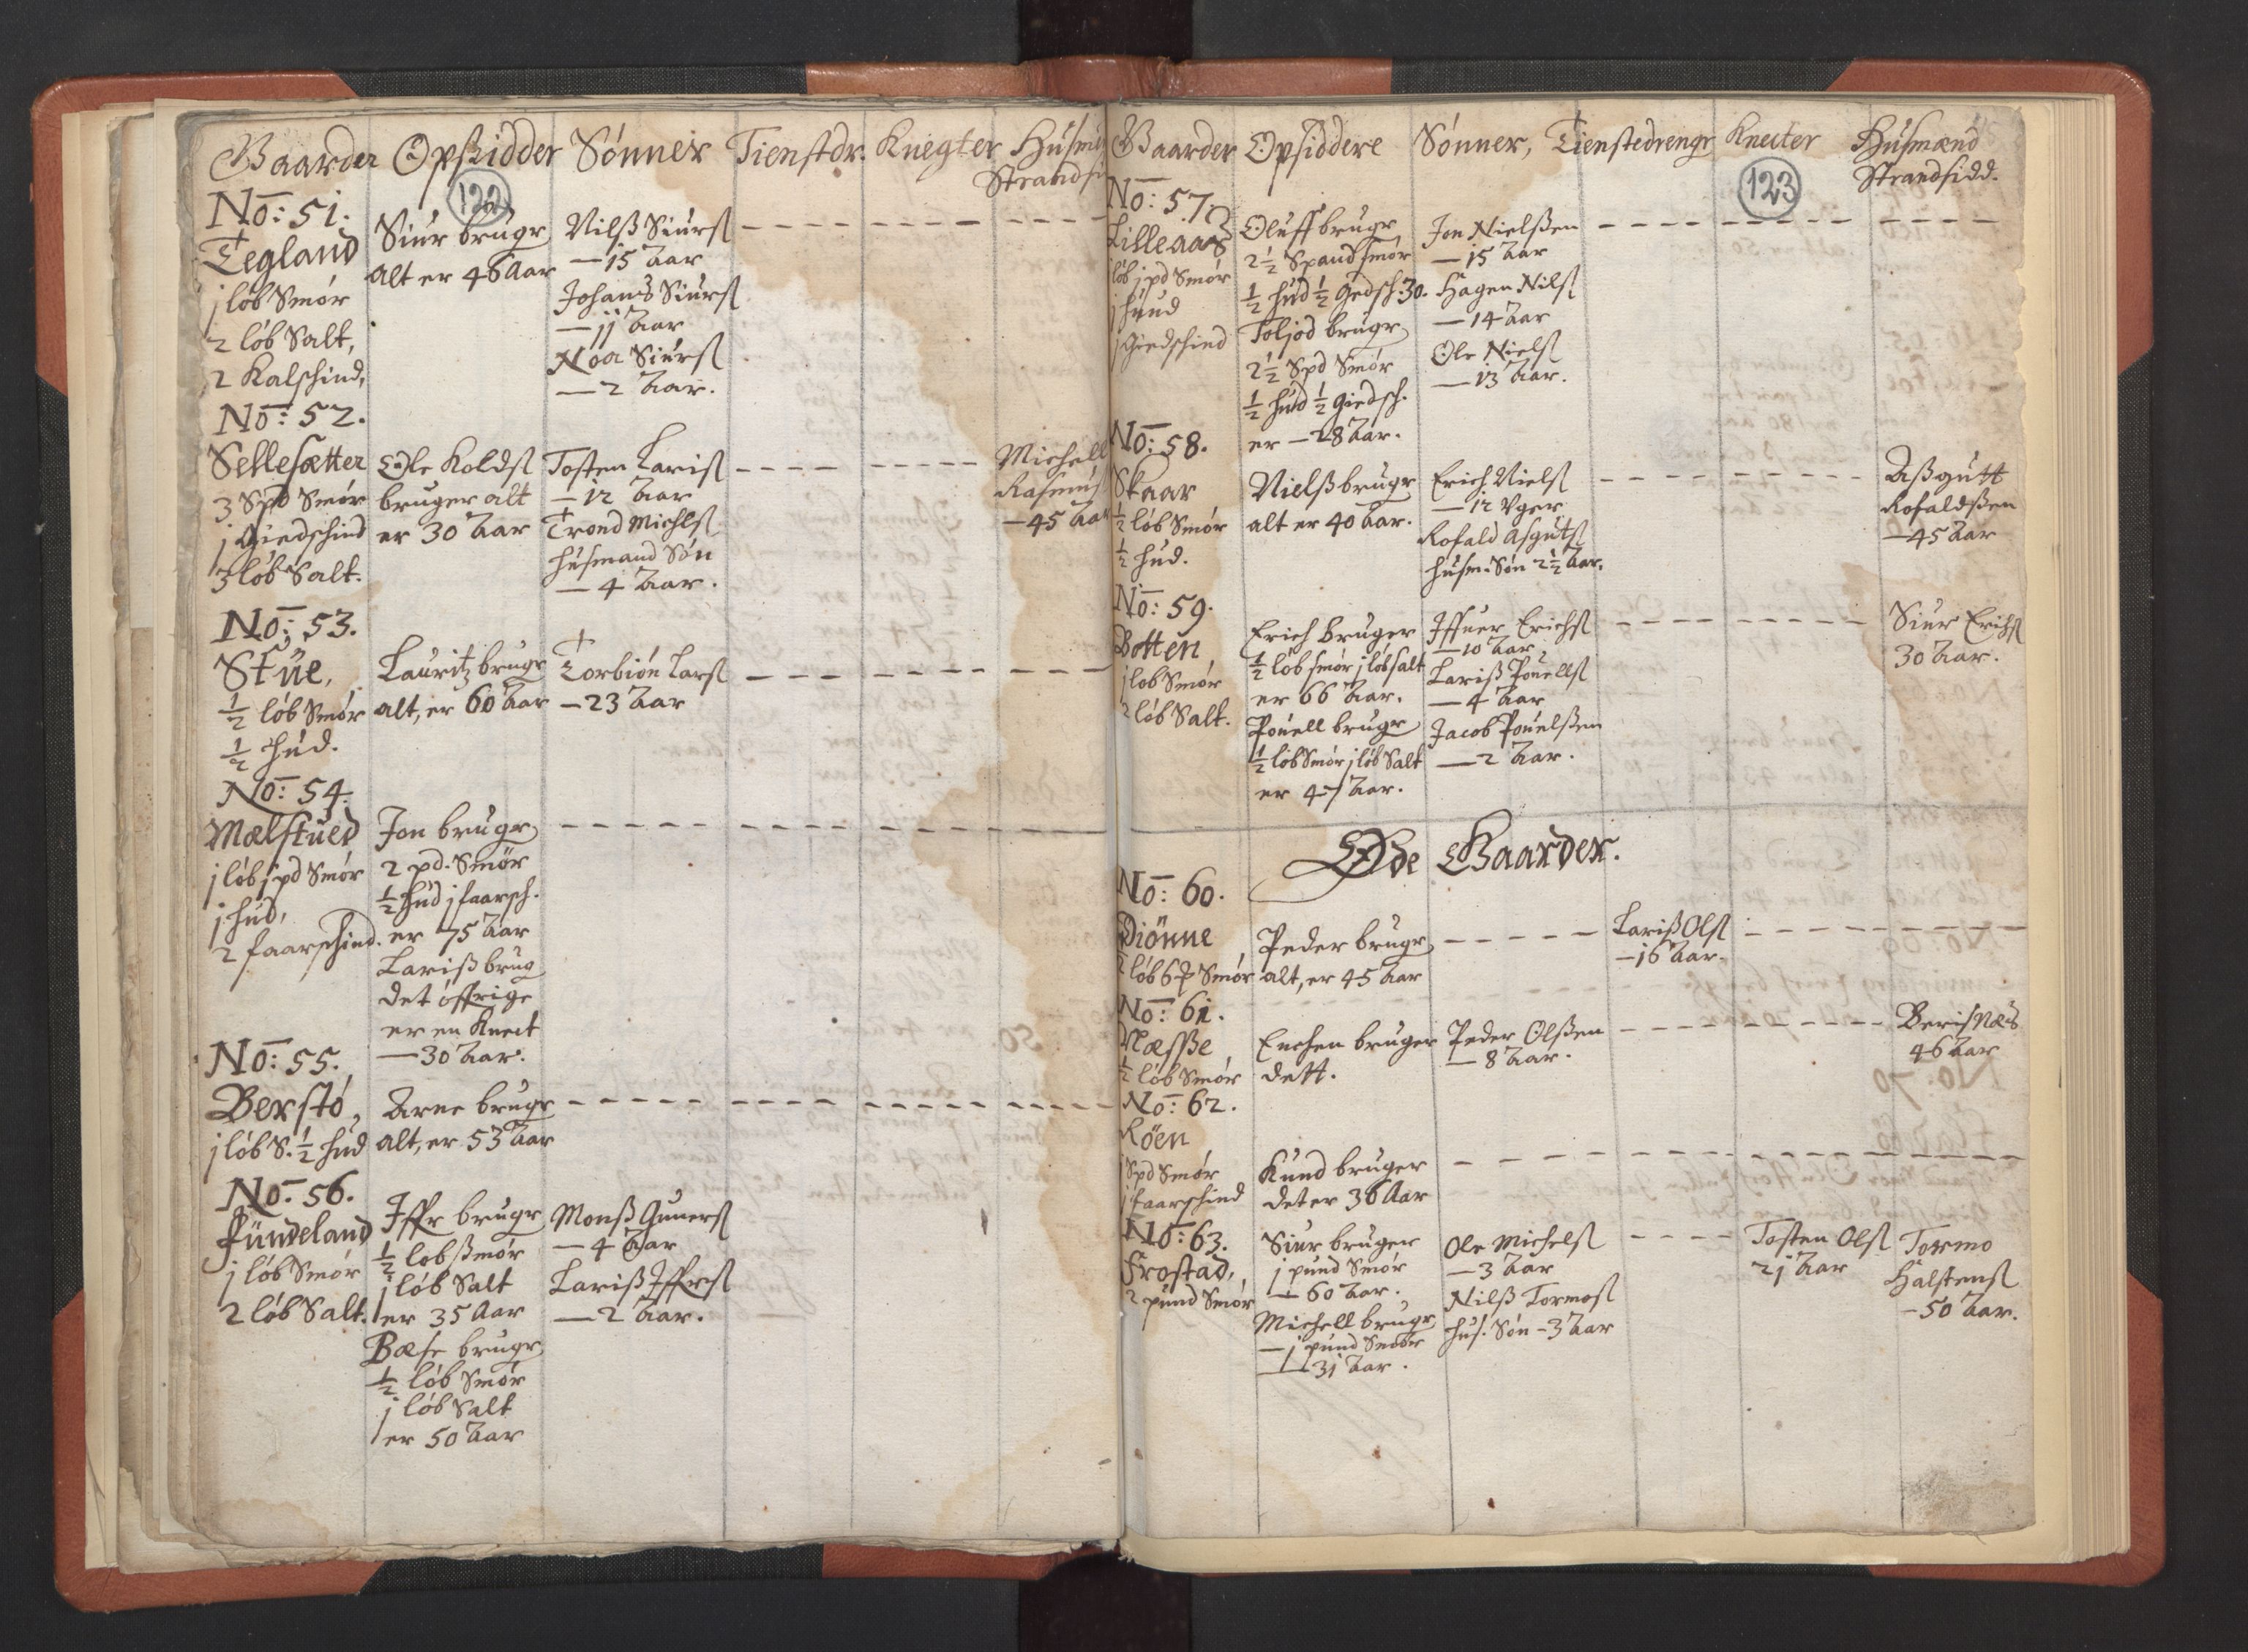 Gaarder Opsidder Sønner Tienstdr. Knegter Husm
Strandsi
122
No: 51.
Tegland
j løb Smør
2 løb Salt,
2 Kalschind,
Siur brugr
alt er 46 Aar
Nilß Siurs
— 15 Aar
Johans Siurs
— 11 Aar
Noa Siurs
— 2 Aar.
No: 52.
Sellesætter
3 Spd Smør
j Giedschind
3 løb Salt.
Ole Kolds
bruger alt
er 30 Aar
Tosten Laris
— 12 Aar
Trond Michls
husmand Søn
— 4 Aar.
Michell
Rasmus
— 45 Aar
No: 53.
Stüe,
½ løb Smør
½ hud.
Lauritz brugr
alt, er 60 Aar
Torbiön Lars
— 23 Aar
No: 54.
Mælstued
j løb j pd Smør
j hud,
2 faarschind.
Jon brugr
2 pd. Smør
½ hud j faarsch.
er 75 Aar
Lariß brug
det öffrige
er en Knect
— 30 Aar.
No: 55.
Berstø,
j løb S. ½ hud
Arne brugr
alt, er 53 Aar
No: 56.
Fündeland
j løb Smør
2 løb Salt.
Iffr brugr
½ løb Smør
j løb Salt
er 35 Aar
Bæse brugr
½ løb Smør
j løb Salt
er 50 Aar
Monß Guners
— 4 Aar
Lariß Iffrs
— 2 Aar.
Gaarder Opsiddere Sønner, Tienstedrengr Knecter Husmænd
Strandsidd.
123
No: 57.
Lilleaas
løb j pd Smør
j huud
j Giedschind
Oluff brugr
2½ Spand smør
½ hud ½ Gedsch. 30.
Toljod brugr
2½ Spd Smør
½ hud ½ Giedsch.
er — 28 Aar.
Jon Nielßen
— 15 Aar
Hagen Nils
— 14 Aar
Ole Niels
— 13 Aar.
No: 58.
Skaar
½ løb Smør
½ hud.
Nielß brugr
alt er 40 Aar.
Erich Niels
— 12 Uger
Rofald Asguts
husm. Søn 2½ Aar.
Aßgutt
Rofaldßen
— 45 Aar
No: 59.
Botten
j løb Smør
2 løb Salt.
Erich bruger
½ løb smør j løb salt
er 66 Aar.
Pouell brugr
½ løb Smør j løb Salt
er 47 Aar.
Iffuer Erichs
— 10 Aar,
Lariß Pouells
— 4 Aar
Jacob Pouelßen
— 2 Aar.
Siur Erichs
30 Aar.
Øde Gaarder.
No: 60.
Diönne
løb 6 Smør
Peder brugr
alt, er 45 Aar
Lariß Ols
— 16 Aar.
No: 61.
Næsße
½ løb Smør
Enchen bruger
dett.
Peder Olßen
— 8 Aar.
Beris Næs
46 Aar
No: 62.
Röen
j Spd Smør
j faarschind
Kund bruger
det er 36 Aar
No: 63.
Frostad,
2 pund Smør
Siur bruger
j pund Smør
— 60 Aar.
Michell brugr
— j pund Smör
— 31 Aar.
Ole Michels
— 3 Aar
Nilß Tormos
hus. Søn — 3 Aar
Tosten Ols
21 Aar
Tormo
Halstens
— 50 Aar.